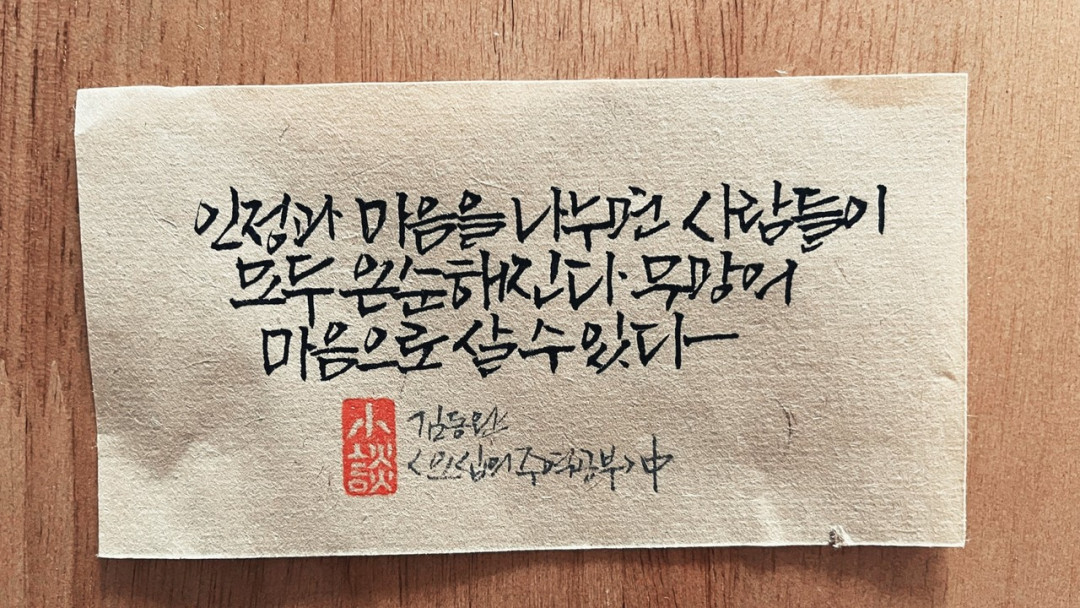 인정과 마음을 나누면 사람들이
모두 온순해진다. 무망의
마음으로 살 수 있다-
小談
김동완
<오십의 주역공부> 中